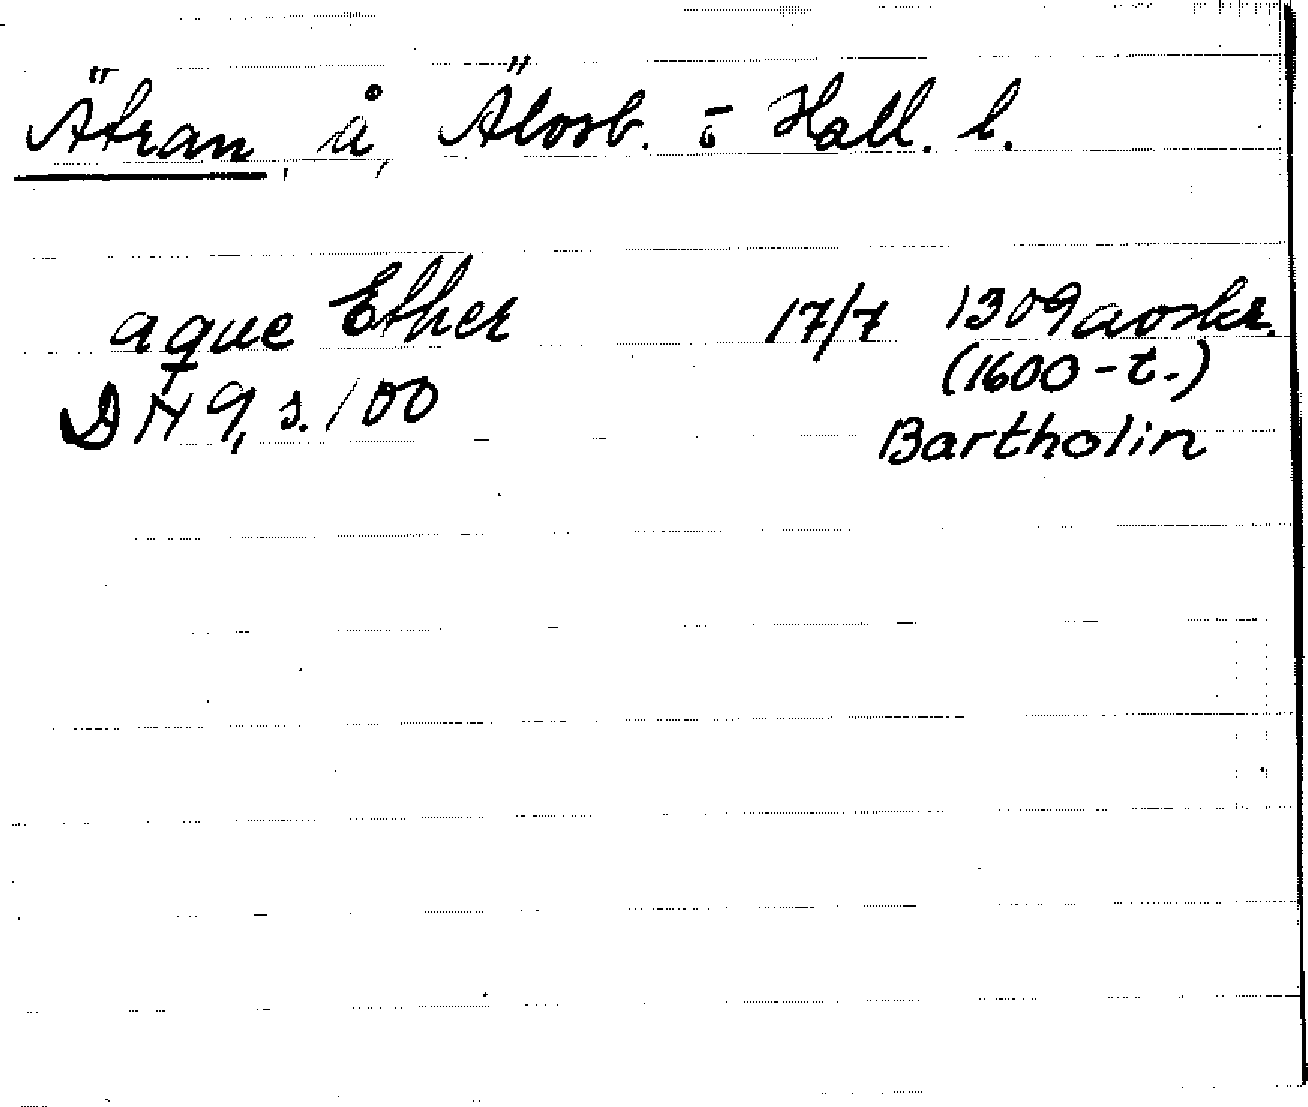 Ätran, å, Älvsb. o Hall. l.
aque Ether 17/7 1309 avskr.
(1600-t.)
DN 9, s. 100
Bartholin